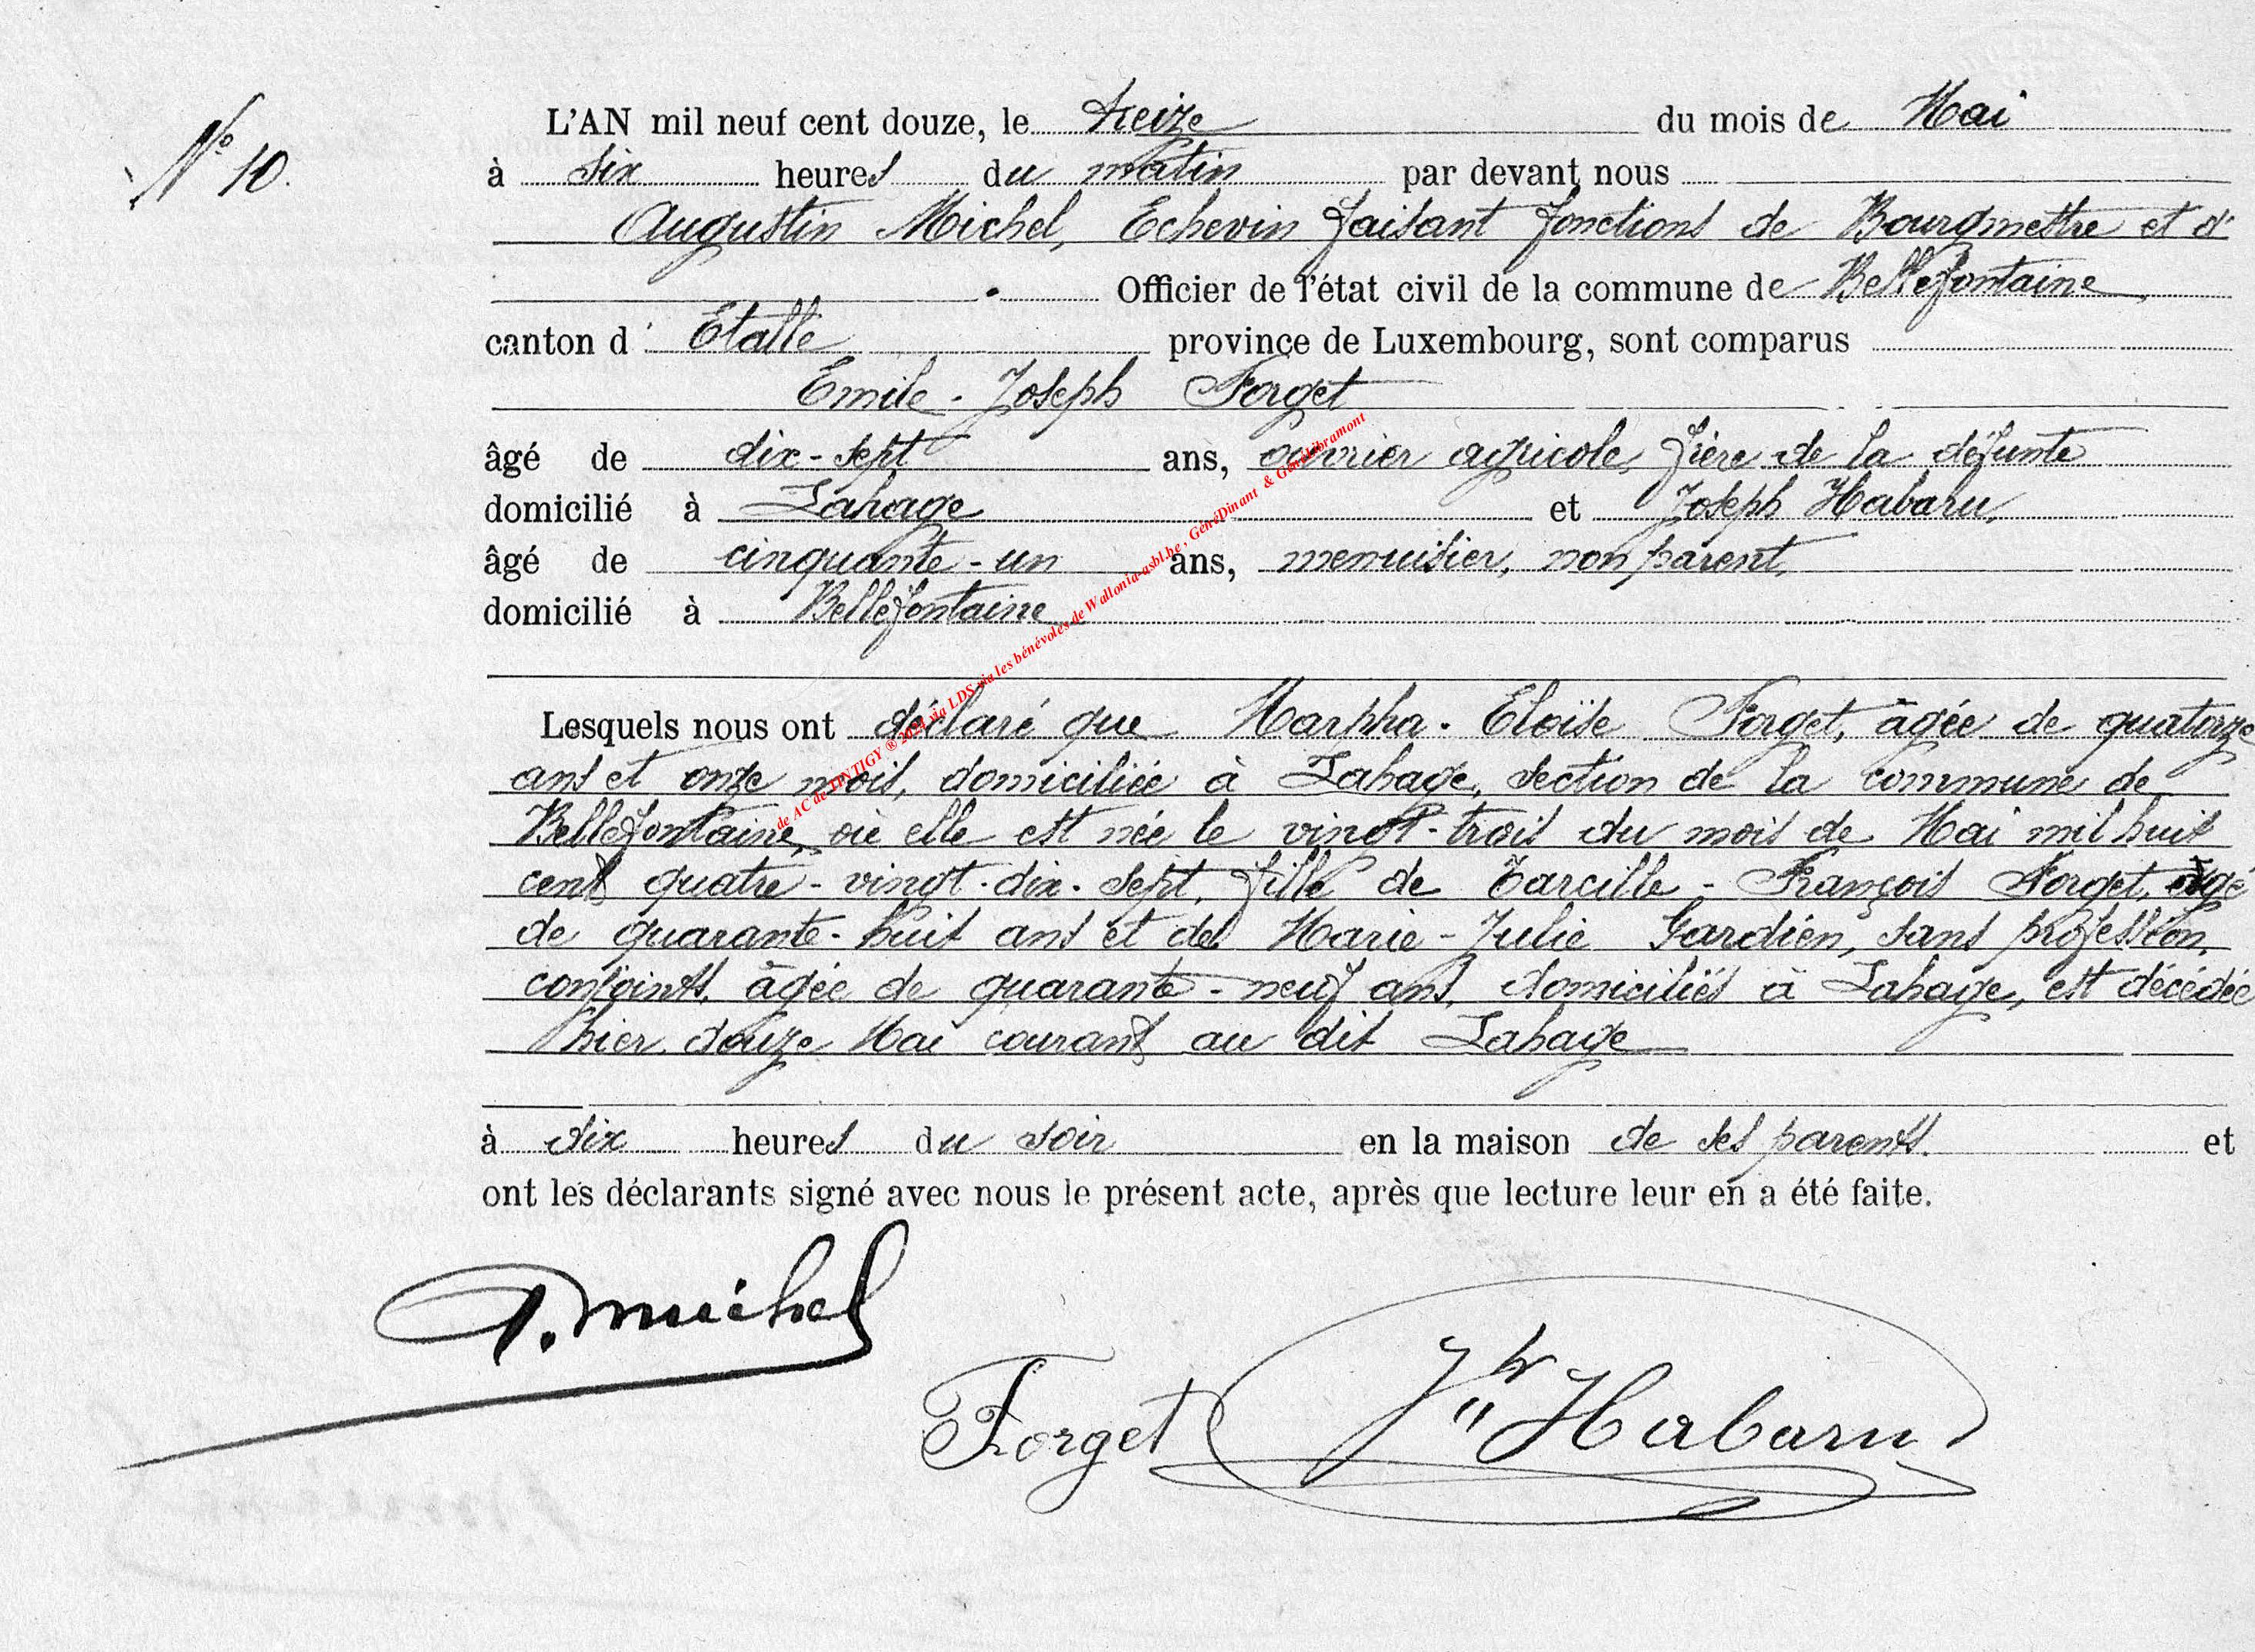 N° 10.
L'AN mil neuf cent douze, le treize du mois de Mai
à six heures du matin par devant nous
Augustin Michel, Echevin faisant fonctions de Bourgmestre et d'
Officier de l'état civil de la commune de Bellefontaine,
canton d'Etalle province de Luxembourg, sont comparus
Emile-Joseph Forget
âgé de dix-sept ans, ouvrier agricole, frère de la défunte
domicilié à Lahage et Joseph Habaru,
âgé de cinquante-un ans, menuisier, non parent,
domicilié à Bellefontaine
Lesquels nous ont déclaré que Martha-Eloïse Forget, âgée de quatorze
ans et onze mois, domiciliée à Lahage, section de la commune de
Bellefontaine, où elle est née le vingt-trois du mois de Mai mil huit
cent quatre-vingt-dix-sept, fille de Tarcille-François Forget, âgé
de quarante-huit ans et de Marie-Julie Gardien, sans profession,
conjoints, âgée de quarante-neuf ans, domiciliés à Lahage, est décédée
hier douze Mai courant au dit Lahage
à dix heures du soir en la maison de ses parents. et
ont les déclarants signé avec nous le présent acte, après que lecture leur en a été faite.
A. Michel
Forget Jph Habaru
de AC de TINTIGY ® 2024 via LDS via les bénévoles de Wallonia-asbl.be, GénéDinant & GénéLibramont